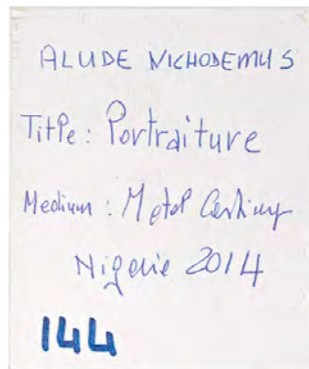 ALUDE NICHODEMUS
Title: Portraiture
Medium: Metal Casting
Nigeria 2014
144